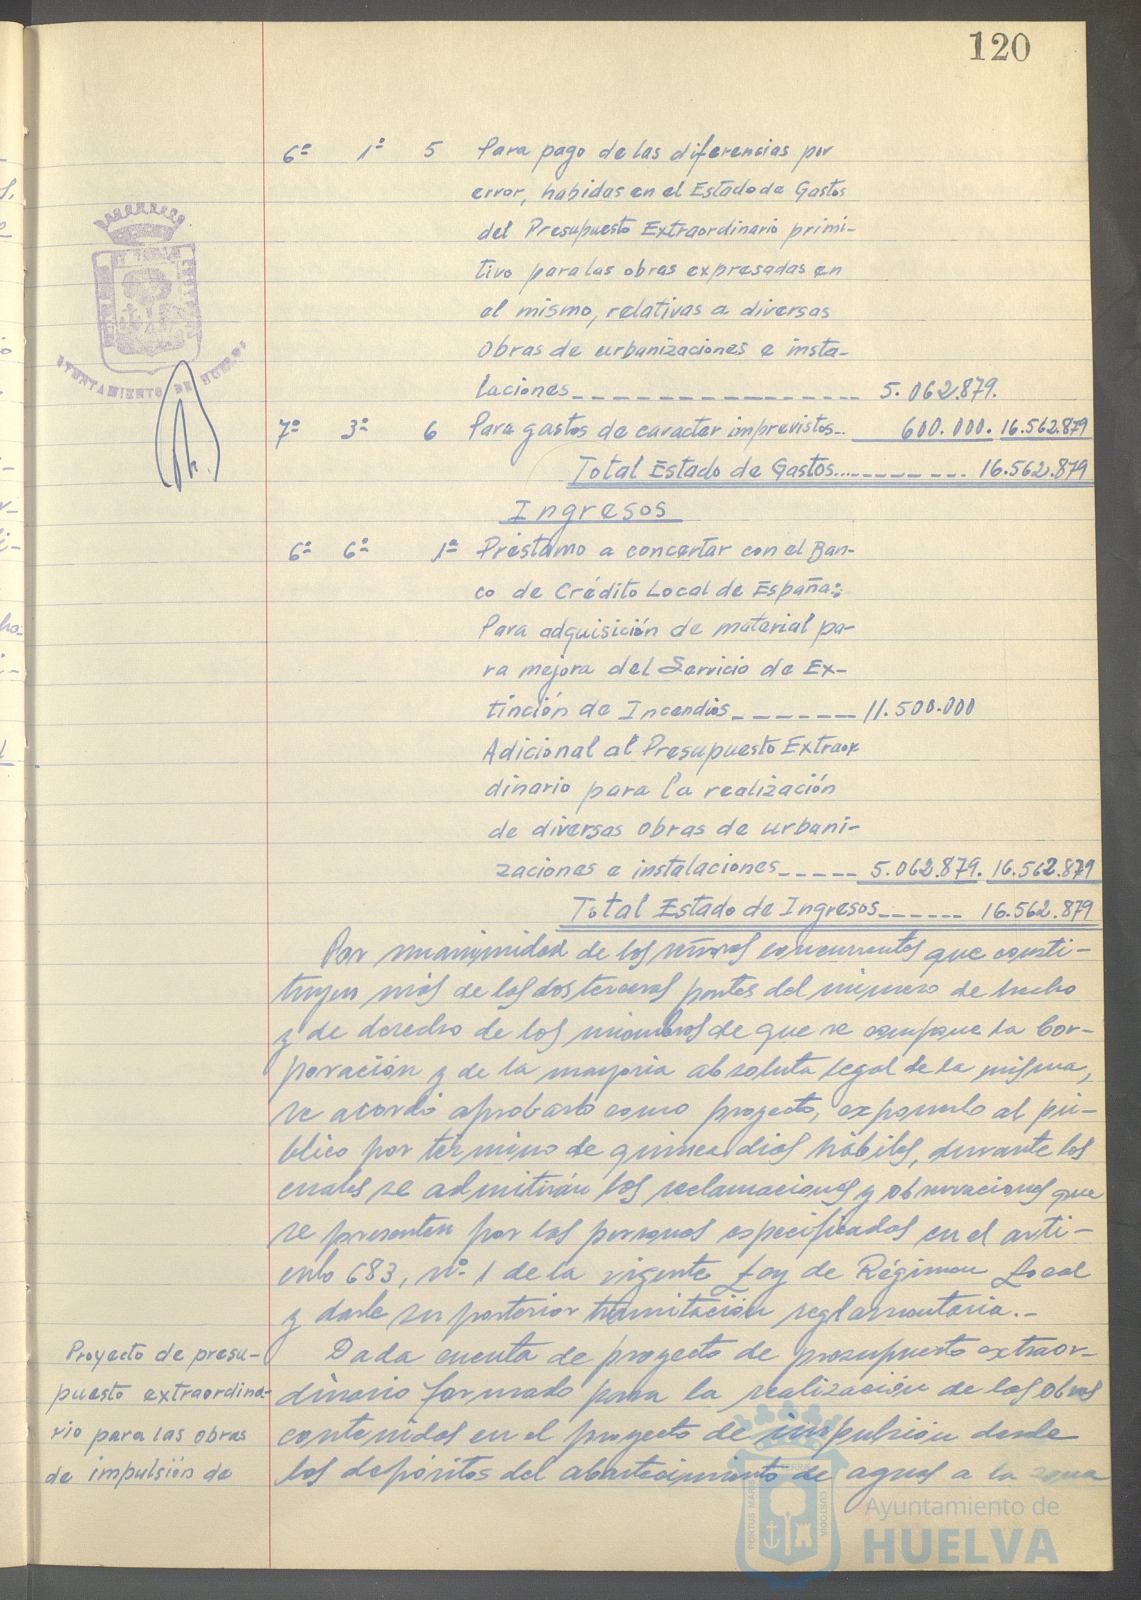 120
6º 1º 5 Para pago de las diferencias por
error, habidas en el Estado de Gastos
del Presupuesto Extraordinario primi-
tivo para las obras expresadas en
el mismo, relativas a diversas
Obras de urbanizaciones e insta-
laciones 5.062.879.
7º 3º 6 Para gastos de caracter imprevistos 600.000. 16.562.879
Total Estado de Gastos 16.562.879
Ingresos
6º 6º 1º Préstamo a concertar con el Ban-
co de Crédito Local de España:
Para adquisición de material pa-
ra mejora del Servicio de Ex-
tinción de Incendios 11.500.000
Adicional al Presupuesto Extraor
dinario para la realización
de diversas obras de urbani-
zaciones e instalaciones 5.062.879. 16.562.879
Total Estado de Ingresos 16.562.879
Por unanimidad de los señores concurrentes que consti-
tuyen más de las dos terceras partes del número de hecho
y de derecho de los miembros de que se compone la Cor-
poración y de la mayoria absoluta legal de la misma,
se acordó aprobarlo como proyecto, exponerlo al pú-
blico por término de quince dias hábiles, durante los
cuales se admitirán las reclamaciones y observaciones que
se presenten por las personas especificadas en el artí-
culo 683, nº 1 de la vigente Ley de Régimen Local
y darle su posterior tramitación reglamentaria.-
Proyecto de presu-
puesto extraordina-
rio para las obras
de impulsión de
Dada cuenta de proyecto de presupuesto extraor-
dinario formado para la realización de las obras
contenidas en el proyecto de impulsión desde
los depósitos del abastecimiento de aguas a la zona
AYUNTAMIENTO DE HUELVA
PORTUS MARIS ET TERRAE CUSTODIA
Ayuntamiento de
HUELVA